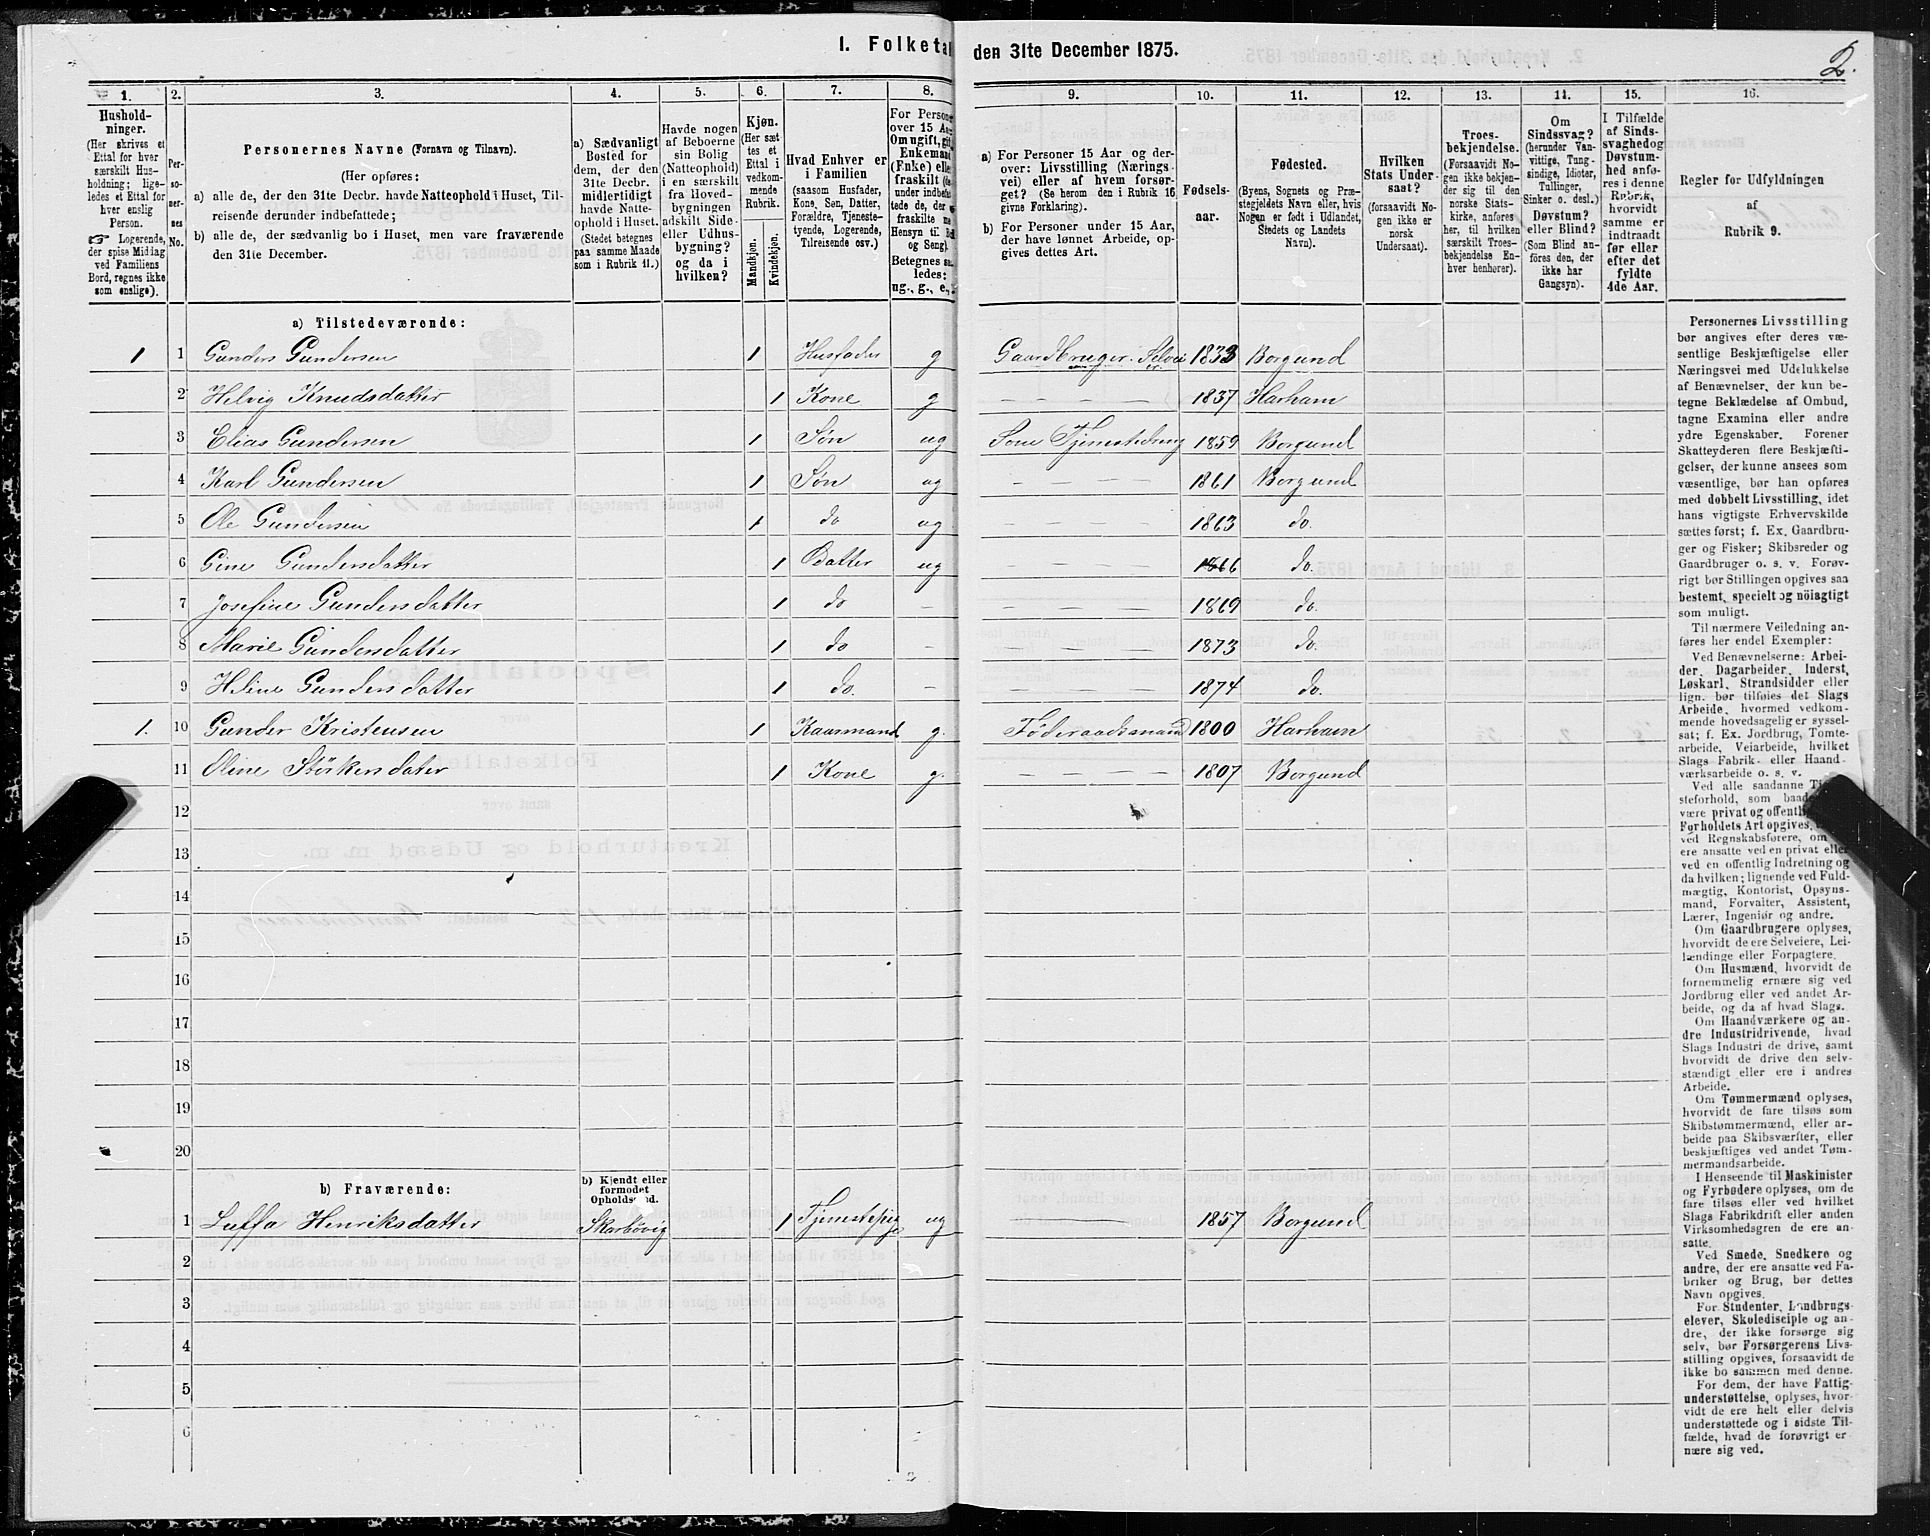 I. Folketal den 31te December 1875.
2.
1. 2. 3. 4. 5. 6. 7. 8. 9. 10. 11. 12. 13. 14. 15. 16.
Hushold-
ninger.
(Her skrives et
Ettal for hver
særskilt Hus-
holdning; lige-
ledes et Ettal for
hver enslig
Person.
☞ Logerende,
der spise Middag
ved Familiens
Bord, regnes ikke
som enslige).
Per-
so-
ner-
nes
No.
Personernes Navne (Fornavn og Tilnavn).
(Her opføres:
a) alle de, der den 31te Decbr. havde Natteophold i Huset, Til-
reisende derunder indbefattede;
b) alle de, der sædvanlig bo i Huset, men vare fraværende
den 31te December.
a) Sædvanligt
Bosted for
dem, der den
31te Decbr.
midlertidigt
havde Natte-
ophold i Huset.
(Stedet betegnes
paa samme Maade
som i Rubrik 11.)
Havde nogen
af Beboerne
sin Bolig
(Natteophold)
i en særskilt
fra Hoved-
bygningen
adskilt Side-
eller Udhus-
bygning?
og da i
hvilken?
Kjøn.
(Her sæt
tes et
Ettal i
vedkom-
mende
Rubrik.
Mandkjøn.
Kvindekjøn.
Hvad Enhver er
i Familien
(saasom Husfader,
Kone, Søn, Datter,
Forældre, Tjeneste-
tyende, Logerende,
Tilreisende osv.)
For Person
over 15 Aa
Om ugift, gif
Enkeman
(Enke) elle
fraskilt
under indbe
tede de, der
fraskilte
Hensyn til B
og Seng).
Betegnes sa
ledes:
ug., g., e.,
a) For Personer 15 Aar og der-
over: Livsstilling (Nærings-
vei) eller af hvem forsør-
get? (Se herom den i Rubrik 16
givne Forklaring).
b) For Personer under 15 Aar,
der have lønnet Arbeide, op-
gives dettes Art.
Fødsels-
aar.
Fødested.
(Byens, Sognets og Præ-
stegjeldets Navn eller, hvis
Nogen er født i Udlandet,
Stedets og Landets
Navn).
Hvilken
Stats Under-
saat?
(forsaavidt No-
gen ikke er
norsk
Undersaat).
Troes-
bekjendelse.
(Forsaavidt No-
gen ikke bekjen-
der sig til den
norske Stats-
kirke, anføres
her, til hvilken
særskilt Troes-
bekjendelse En-
hver henhører).
Om
Sindssvag?
(herunder Van-
vittige, Tung-
sindige, Idioter,
Tullinger,
Sinker o. desl.)
Døvstum?
eller Blind?
(Som Blind an-
føres den, der
ikke har
Gangsyn).
I Tilfælde
af Sinds-
svaghed og
Døvstum-
hed anfø-
res i denne
Rubrik,
hvorvidt
samme er
indtraadt
før eller
efter det
fyldte
4de Aar.
Regler for Udfyldningen
af
Rubrik 9.
a) Tilstedeværende:
1 1 Gunders Gundersen 1 Husfader g Gaardbruger. Selvei 1833 Borgund
2 Helvig Knudsdatter 1 Kone g — — — — 1837 Harham
3 Elias Gundersen 1 Søn ug Som Tjenestedreng 1859 Borgund
4 Karl Gundersen 1 Søn ug — — — — 1861 Borgund
5 Ole Gundersen 1 do ug — — — — 1863 do.
6 Gine Gundersdatter 1 Datter ug — — — — 1866 do.
7 Josefine Gundersdatter 1 do — — — — — 1869 do.
8 Marie Gundersdatter 1 do — — — — — 1873 do.
9 Heline Gundersdatter 1 do. — — — — — 1874 do.
1. 10 Gunder Kristensen 1 Kaarmand g. Føderaadsmand 1800 Harham
11 Oline Störkersdater 1 Kone g. — — — — 1807 Borgund
12
13
14
15
16
17
18
19
20
b) Fraværende:
b) Kjendt eller
formodet
Opholdssted.
1 Luffa Henriksdatter Skarbövig 1 Tjenestepige ug — 1857 Borgund
2
3
4
5
6
Personernes Livsstilling
bør angives efter deres væ-
sentlige Beskjæftigelse eller
Næringsvei med Udelukkelse
af Benævnelser, der kun be-
tegne Beklædelse af Ombud,
tagne Examina eller andre
ydre Egenskaber. Forener
Skatteyderen flere Beskjæfti-
gelser, der kunne ansees som
væsentlige, bør han opføres
med dobbelt Livsstilling, idet
hans vigtigste Erhvervskilde
sættes først; f. Ex. Gaardbru-
ger og Fisker; Skibsreder og
Gaardbruger o. s. v. Forøv-
rigt bør Stillingen opgives saa
bestemt, specielt og nöiagtigt
som muligt.
Til nærmere Veiledning an-
føres her endel Exempler:
Ved Benævnelserne: Arbei-
der, Dagarbeider, Inderst,
Løskarl, Strandsidder eller
lign. bør tilføies det Slags
Arbeide, hvormed vedkom-
mende hovedsagelig er syssel-
sat; f. Ex. Jordbrug, Tomte-
arbeide, Veiarbeide, hvilket
Slags Fabrik- eller Haand-
værksarbeide o. s. v.
Ved alle saadanne
steforhold, som baade
være privat og offentl
Forholdets Art opgives,
ved Regnskabsførere, om
ere ansatte ved en privat eller
ved en offentlig Indretning og
da hvilken; lignende ved Fuld-
mægtig, Kontorist, Opsyns-
mand, Forvalter, Assistent,
Lærer, Ingeniør og andre.
Om Gaardbrugere oplyses,
hvorvidt de ere Selveiere, Lei-
lændinge eller Forpagtere.
Om Husmænd, hvorvidt de
fornemmelig ernære sig ved
Jordbrug eller ved andet Ar-
beide, og da af hvad Slags.
Om Haandværkere og an-
dre Industridrivende, hvad
Slags Industri de drive, samt
hvorvidt de drive den selv-
stændigt eller ere i andres
Arbeide.
Om Tømmermænd oplyses,
hvorvidt de fare tilsøs som
Skibstømmermænd, eller ar-
beide paa Skibsværfter, eller
beskjæftiges ved andet Tøm-
mermandsarbeide.
I Henseende til Maskinister
og Fyrbødere oplyses, om de
fare tilsøs eller ved hvilket
Slags Fabrikdrift eller anden
Virksomhedsgren de ere an-
satte.
Ved Smede, Snedkere og
andre, der ere ansatte ved Fa-
briker og Brug, bør dettes
Navn opgives.
For Studenter, Landbrugs-
elever, Skoledisciple og an-
dre, der ikke forsørge sig
selv, bør Forsørgerens Livs-
stilling opgives, forsaavidt de
ikke bo sammen med denne.
For dem, der have Fattig-
understøttelse, oplyses, hvor-
vidt de ere helt eller delvis
understøttede og i sidste Til-
fælde, hvad de forøvrigt er-
nære sig ved.